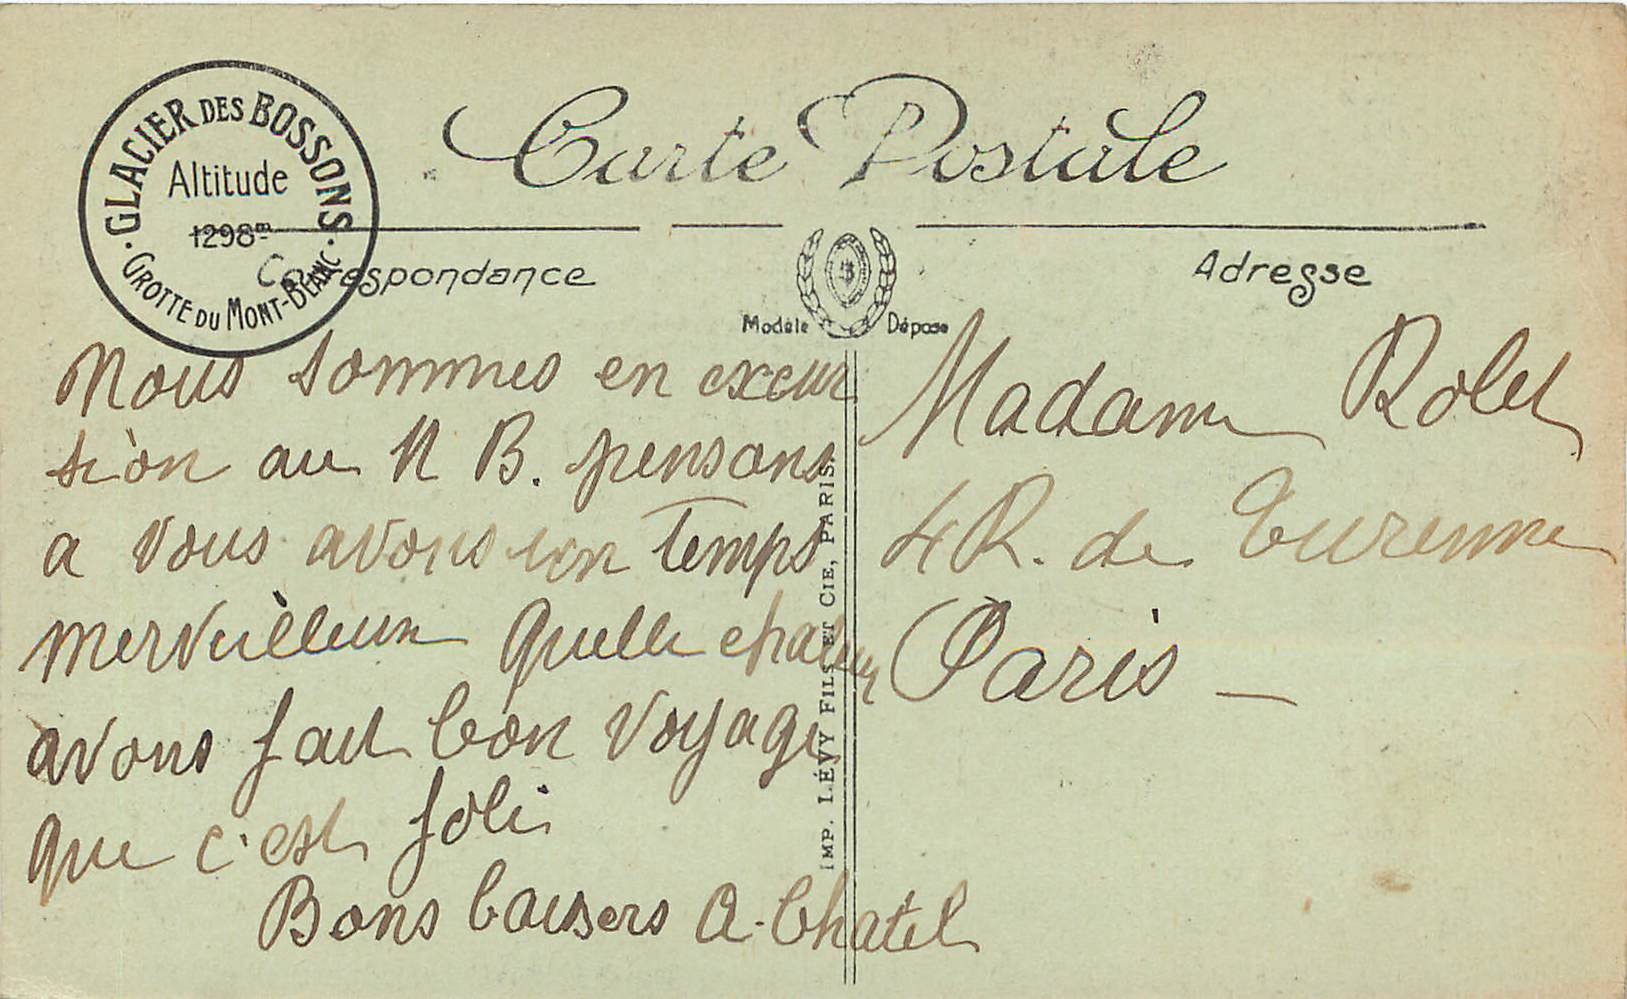 GLACIER DES BOSSONS
Altitude
1298m
GROTTE DU MONT-BLANC
Carte Postale
Correspondance
Adresse
Modèle Déposé
Nous sommes en excur
sion au M B. pensons
a vous avons un temps
merveilleux quelle chaleur
avons fait bon voyage
que c'est joli
Bons baisers A. Chatel
IMP. LÉVY FILS ET CIE, PARIS.
Madame Rolet
4 R. de Turenne
Paris —